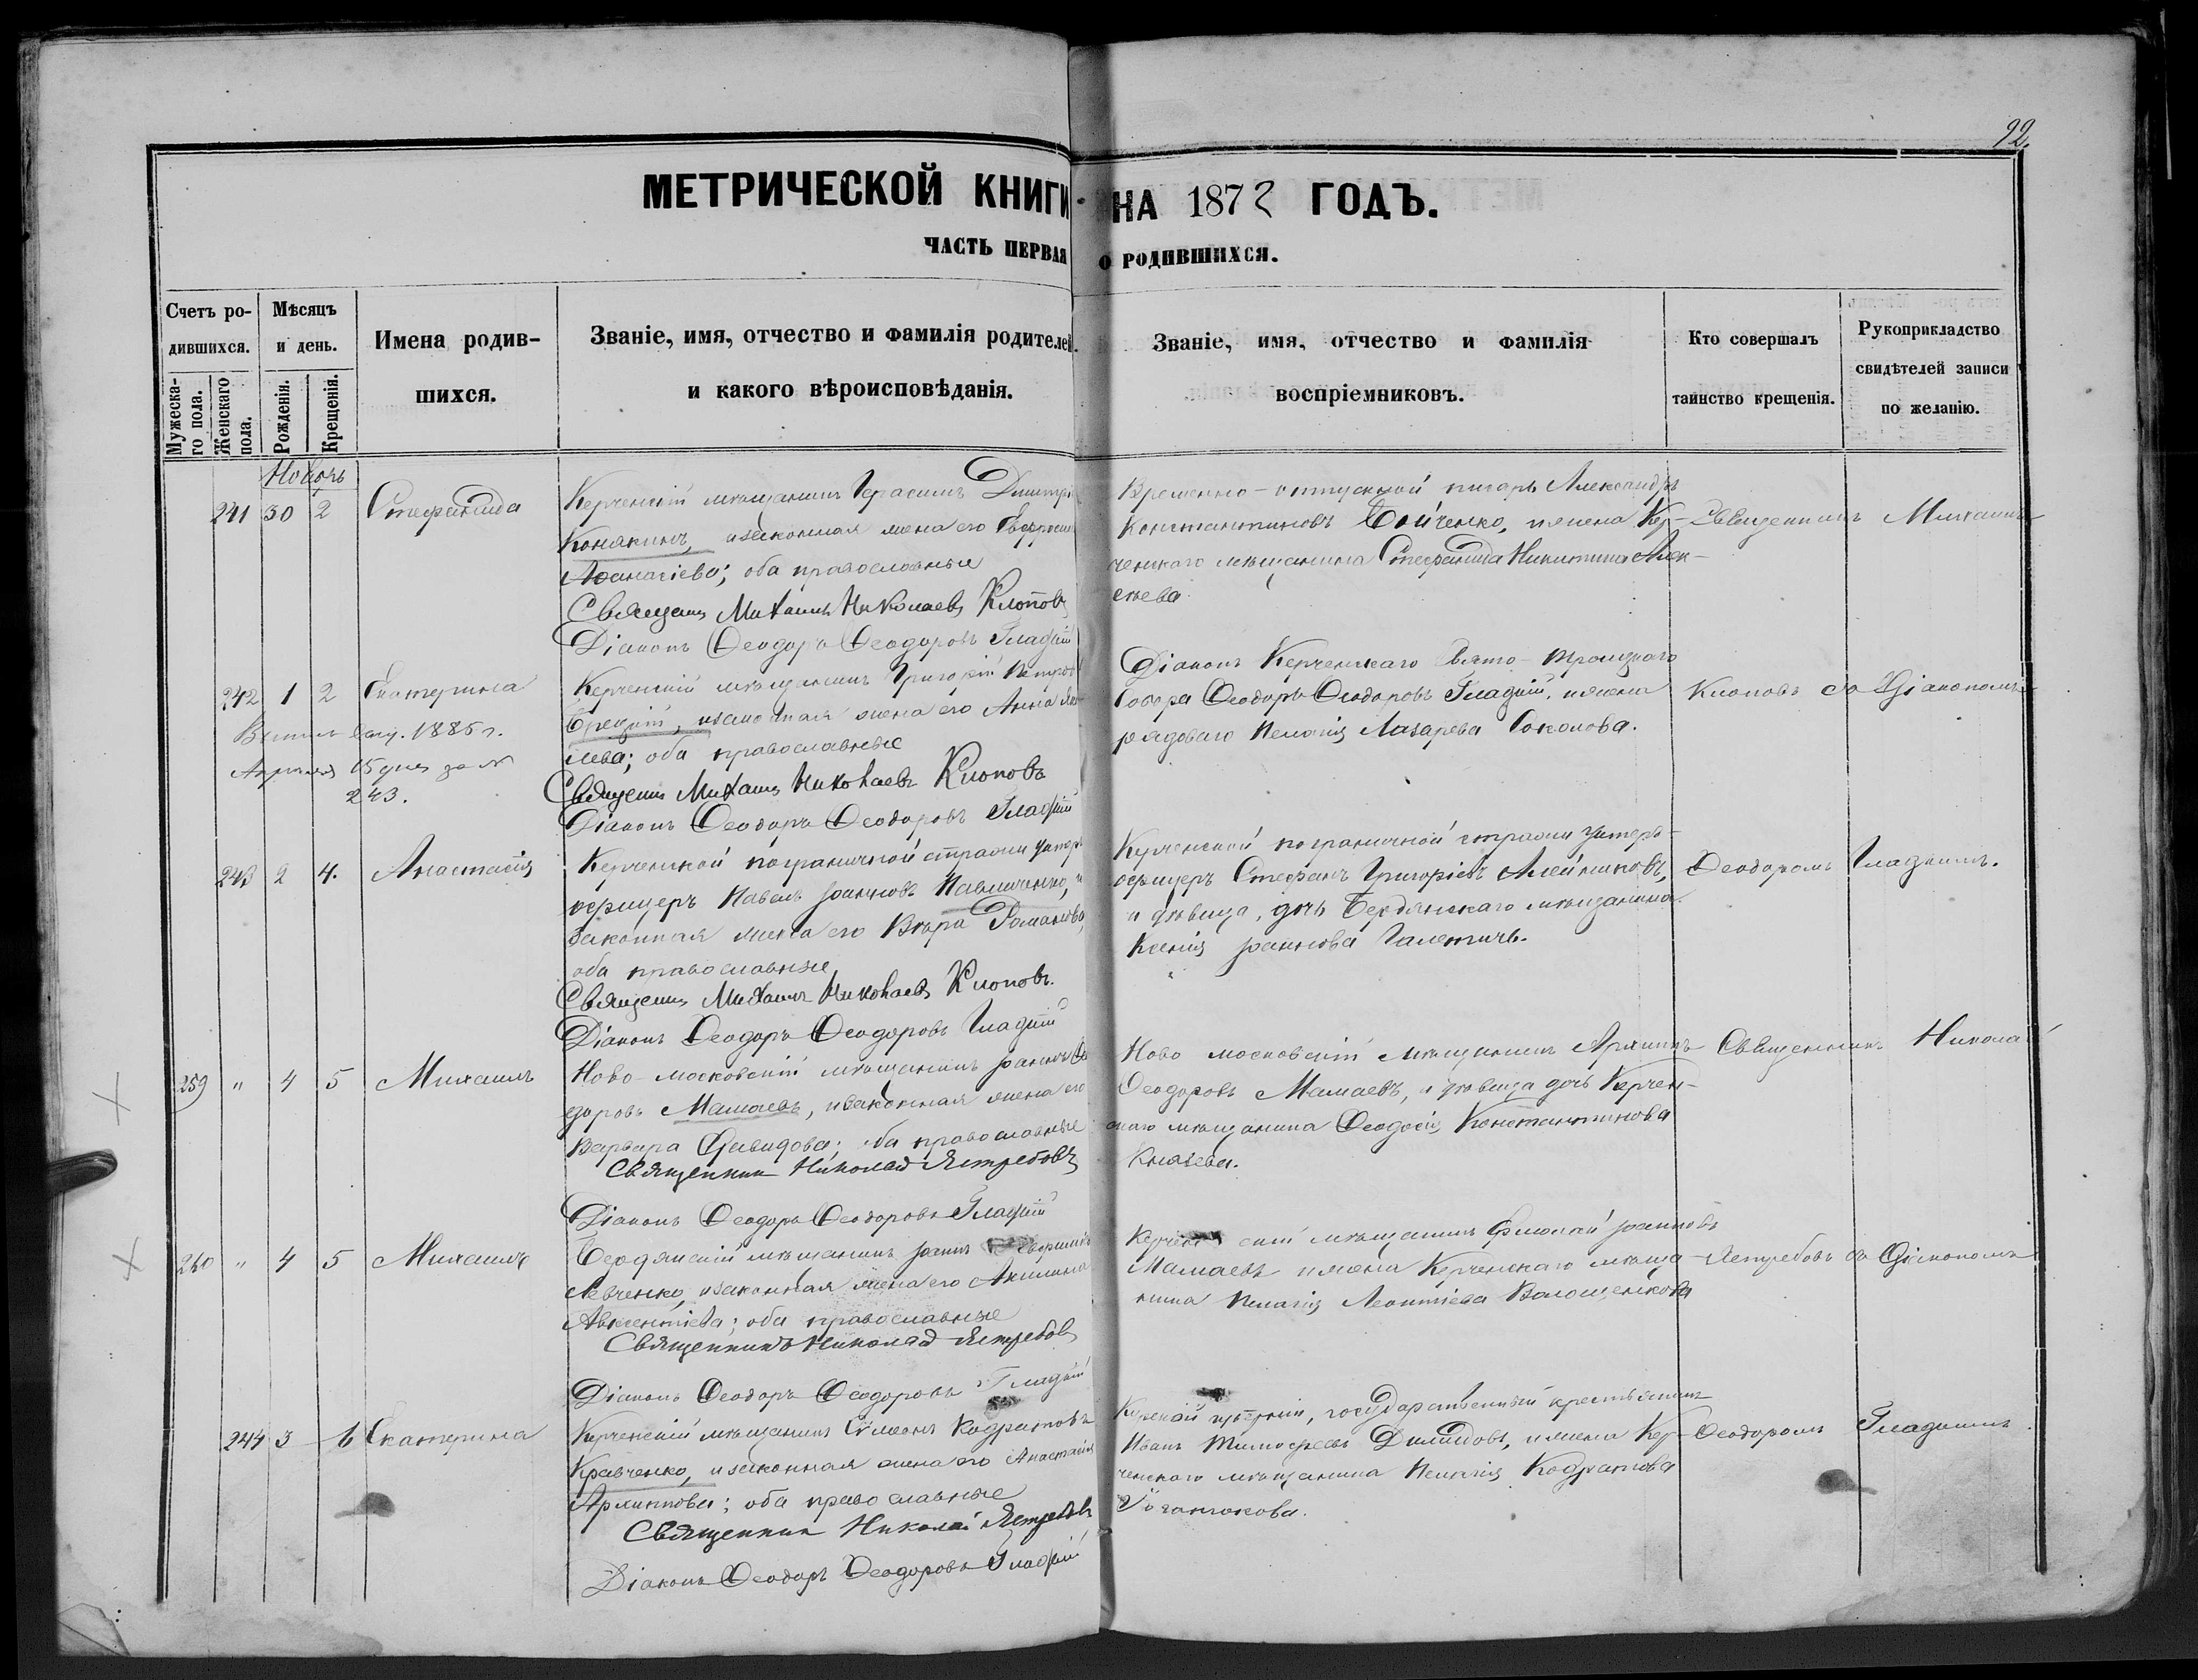 92.
МЕТРИЧЕСКОЙ КНИГИ НА 1872 ГОДЪ.
ЧАСТЬ ПЕРВАЯ О РОДИВШИХСЯ.
Счетъ ро-
дившихся.
Мужеска-
го пола.
Женскаго
пола.
Мѣсяцъ
и день.
Рожденія.
Крещенія.
Имена родив-
шихся.
Званіе, имя, отчество и фамилія родителей.
и какого вѣроисповѣданія.
Званіе, имя, отчество и фамилія
воспріемниковъ.
Кто совершалъ
таинство крещенія.
Рукоприкладство
свидѣтелей записи
по желанію.
Ноябрь
241 30 2 Стефанида
Керченскій мѣщанинъ Герасимъ
Конякинъ, и законная жена его
Аѳанасіева; оба православные
Священ Михаилъ Николаевъ Клоповъ
Діаконъ Ѳеодоръ Ѳеодоровъ Гладкій
Временно-отпускной писарь Александръ
Константиновъ Бойченко, и жена Кер-
ченскаго мѣщанина Стефанида Никитина Алек-
сѣева
Священникъ Михаилъ
242 1 2 Екатерина
1885 г.
Апрѣля 15 дня за №
243.
Керченскій мѣщанинъ Григорій Петровъ
и законная жена его Анна
оба православные
Священ Михаилъ Николаевъ Клоповъ
Діаконъ Ѳеодоръ Ѳеодоровъ Гладкій
Діаконъ Керченскаго Свято-Троицкаго
Собора Ѳеодоръ Ѳеодоровъ Гладкій, и жена
рядоваго Пелагія Лазарева Соколова.
Клоповъ съ Діакономъ
243 2 4. Анастасія
Керченской пограничной стражи унтеръ
офицеръ Павелъ Іоанновъ Павличенко, и
законная жена его Вѣра Романова,
оба православные
Священ Михаилъ Николаевъ Клоповъ.
Діаконъ Ѳеодоръ Ѳеодоровъ Гладкій
Керченской пограничной стражи унтеръ-
офицеръ Стефанъ Григоріевъ Алейниковъ,
и дѣвица, дочь Бердянскаго мѣщанина
Ксенія Іоаннова
Ѳеодоромъ Гладкимъ.
259 " 4 5 Михаилъ
Ново-московскій мѣщанинъ Іоаннъ Ѳе
одоровъ Мамаевъ, и законная жена его
Варвара Давидова; оба православные
Священникъ Николай Ястребовъ
Діаконъ Ѳеодоръ Ѳеодоровъ Гладкій
Ново московскій мѣщанинъ
Ѳеодоровъ Мамаевъ, и дѣвица дочь Керчен-
скаго мѣщанина Ѳеодосія Константинова
Князева.
Священникъ Николай
260 " 4 5 Михаилъ
Бердянскій мѣщанинъ Іоаннъ
Левченко, и законная жена его Акилина
Авксентіева; оба православные
Священникъ Николай Ястребовъ
Діаконъ Ѳеодоръ Ѳеодоровъ Гладкій
мѣщанинъ Іоанновъ
Мамаевъ и жена Керченскаго мѣща-
нина Пелагія Леонтіева Волощенкова
Ястребовъ съ Діакономъ
244 3 6 Екатерина
Керченскій мѣщанинъ Симеонъ Кодратовъ
Кравченко, и законная жена его Анастасія
оба православные
Священникъ Николай Ястребовъ
Діаконъ Ѳеодоръ Ѳеодоровъ Гладкій
Курской губерніи, государственный крестьянинъ
Иванъ Тимоѳеевъ и жена Кер-
ченскаго мѣщанина Пелагія Кодратова
Ѳеодоромъ Гладкимъ